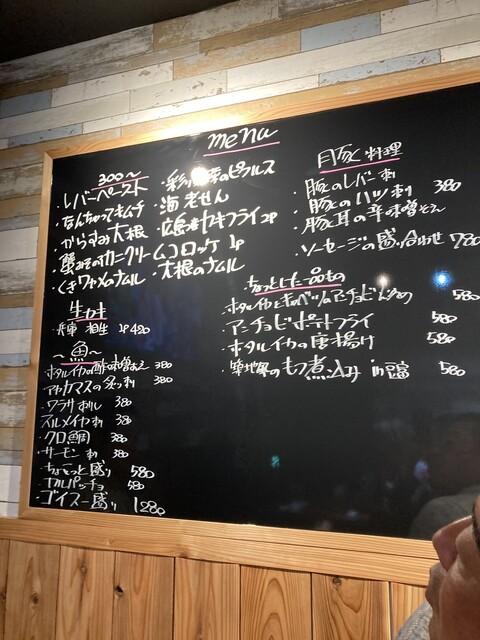 menu
300〜
・レバーペースト
・なんちゃってキムチ
・からすみ大根
・蟹みそのカニクリームコロッケ 1p
・くきワカメのナムル
・彩りのピクルス
・海老せん
・広島産カキフライ 2p
・大根のナムル
生カキ
・兵庫 相生 1P 420
〜魚〜
・ホタルイカの酢味噌あえ 380
・アカカマスの炙り刺 380
・ワラサ刺し 380
・スルメイカ刺 380
・クロ鯛 380
・サーモン刺 380
・ちょこっと盛り 580
・カルパッチョ 580
・ゴイスー盛り 1280
豚 料理
・豚のレバー刺
・豚のハツ刺 380
・豚耳の辛味噌あえ
・ソーセージの盛り合わせ 780
ちょっとした一品もの
・ホタルイカとキャベツのアンチョビ炒め 580
・アンチョビポテトフライ 580
・ホタルイカの唐揚げ 580
・築地のもつ煮込み in 豆富 580